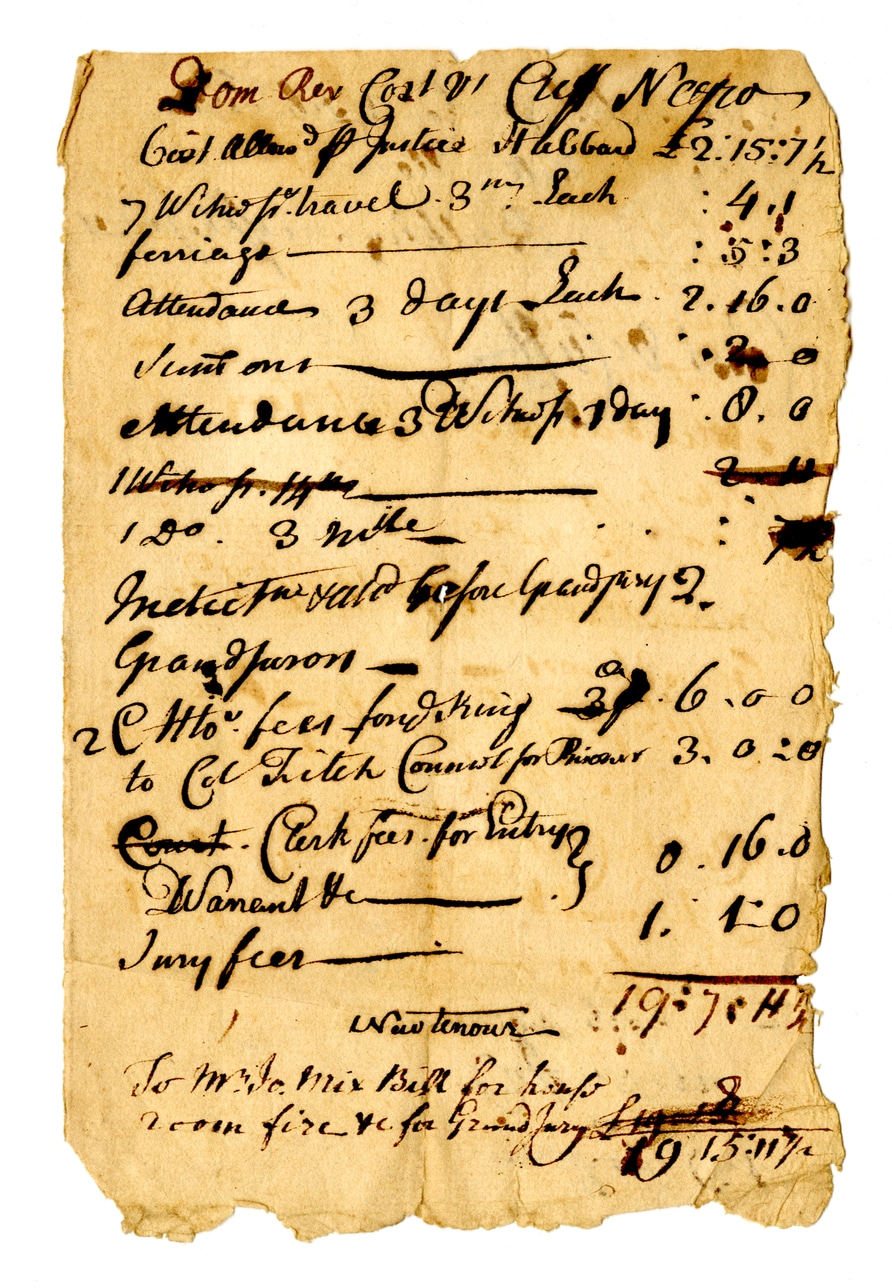 Dom Rex Cost vs Cuff Negro
Cost Allowd pr Justice Hubbard £2:15:7½
7 Witnesss. travel 3 ms Each : 4.1
ferriage : 5:3
Attendance 3 days Each . 2.16.0
Sumons : . 2 0
Attendance 3 Witness. 1 day . 8. 0
1 Witness. 14 ms 2..11
1 Do. 3 mile : 7½
Indictmt before Grandjury 2.
Grandjurors
2 Attor. fees fond King 3 . 6 . 0 0
to Col Fitch Councel for Prisoner 3. 0 : 0
Court. Clerk fees. for Entry }
Warrant &c } 0 . 16.0
Jury fees 1. 1 0
19:7:11½
New tenour
To Mr. Jo. Mix Bill for house 8
room fire &c for Grand Jury £19
19 15:11½